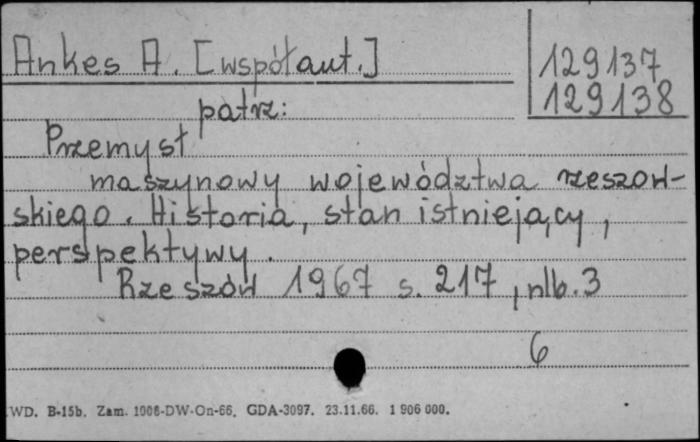 Ankes A. [współaut.]
129137
129138
patrz:
Przemysł
maszynowy województwa rzeszow-
skiego. Historia, stan istniejący,
perspektywy.
Rzeszów 1967 s. 217, nlb. 3
6
WD. B-15b. Zam. 1008-DW-On-66. GDA-3097. 23.11.66. 1 906 000.